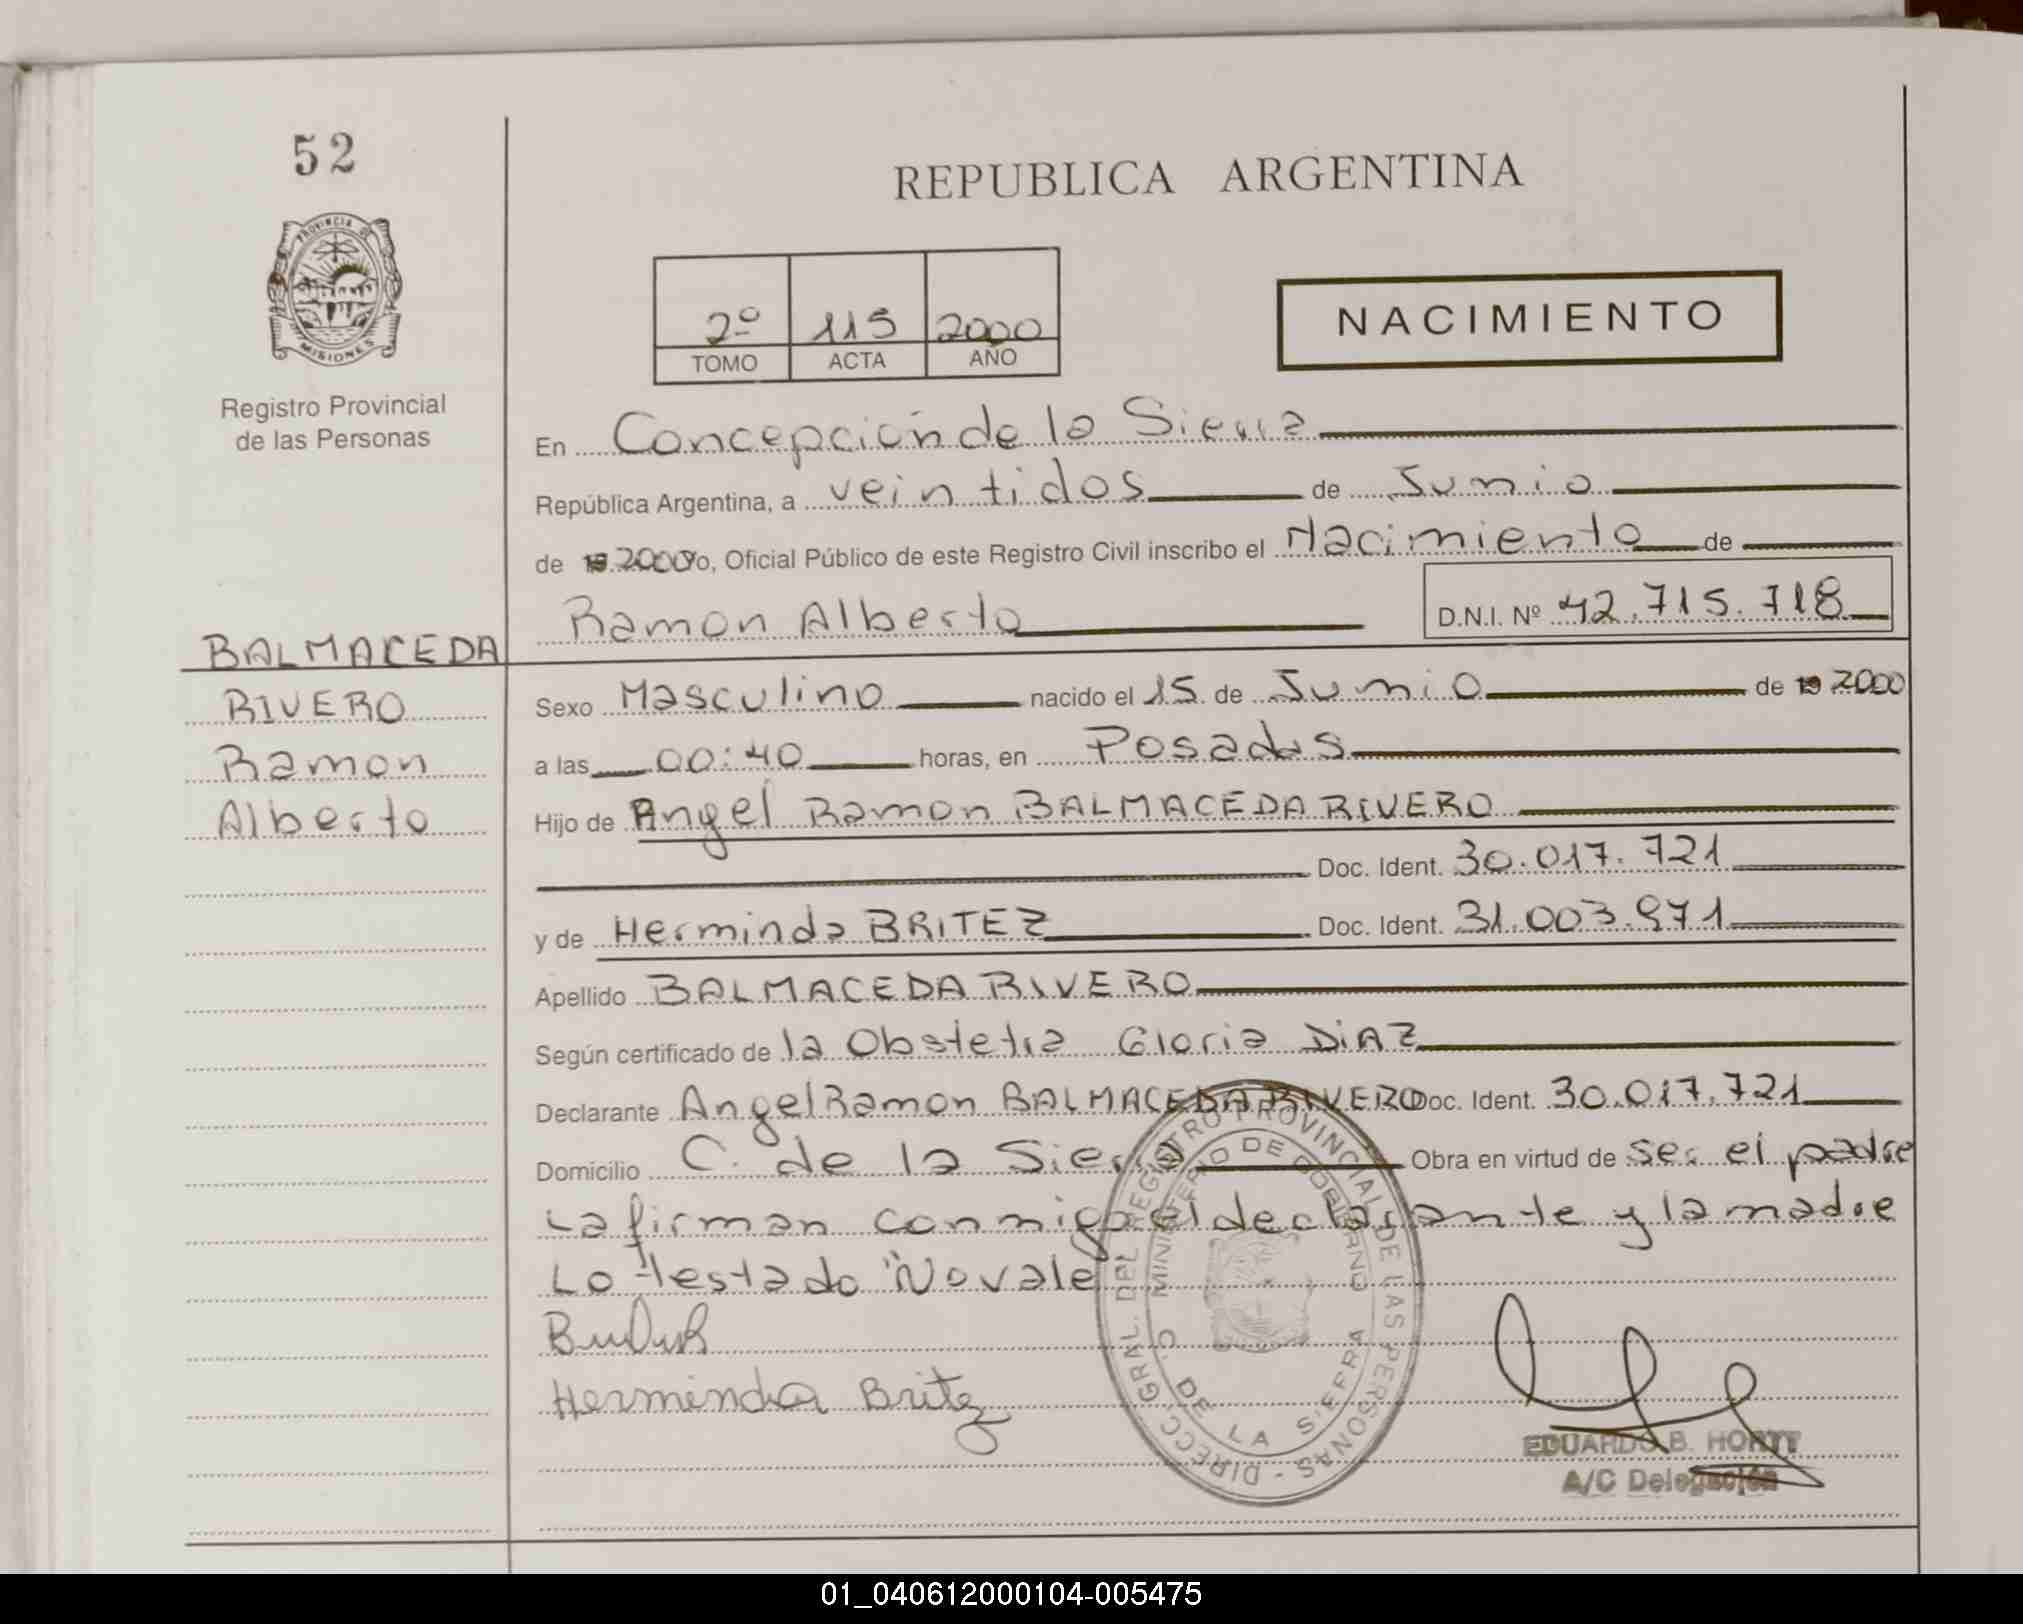 52
REPUBLICA ARGENTINA
PROVINCIA DE
MISIONES
Registro Provincial
de las Personas
2º 115 2000
TOMO ACTA AÑO
NACIMIENTO
En Concepción de la Sierra
República Argentina, a veintidos de Junio
de 19 2000 Yo, Oficial Público de este Registro Civil inscribo el Nacimiento de
Ramon Alberto D.N.I. Nº 42.715.718
BALMACEDA
RIVERO
Ramon
Alberto
Sexo Masculino nacido el 15 de Junio de 19 2000
a las 00:40 horas, en Posadas
Hijo de Angel Ramon BALMACEDA RIVERO
Doc. Ident. 30.017.721
y de Herminda BRITEZ Doc. Ident. 31.003.971
Apellido BALMACEDA RIVERO
Según certificado de la Obstetra Gloria DiAZ
Declarante Angel Ramon BALMACEDA RIVERO Doc. Ident. 30.017.721
Domicilio C. de la Sierra Obra en virtud de ser el padre
La firman conmigo el declarante y la madre
Lo testado "No vale
Herminda Britez
DIRECC. GRAL. DEL REGISTRO PROVINCIAL DE LAS PERSONAS -
MINISTERIO DE GOBIERNO
C. DE LA SIERRA
EDUARDO B. HORTT
A/C Delegación
01_040612000104-005475